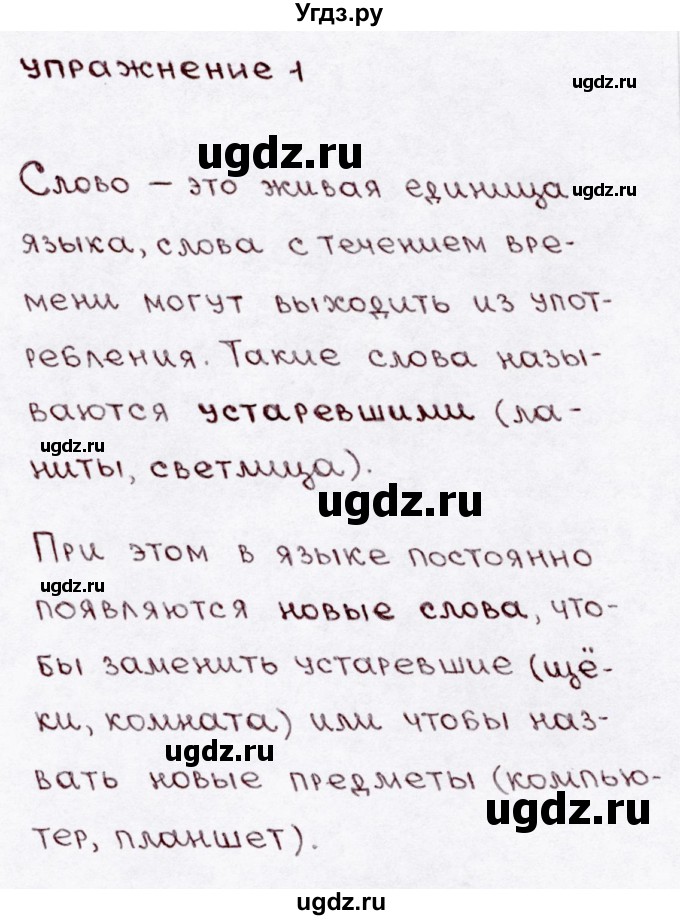 Угдз.ру
упражнение 1
ugdz.ru
ugdz.ru
Слово – это живая единица
ugdz.ru
языка, слова с течением вре-
мени могут выходить из упот-
ребления. Такие слова назы-
ваются устаревшими (ла-
ugdz.ru
ниты, светлица).
ugdz.ru
При этом в языке постоянно
ugdz.ru
появляются новые слова, что-
бы заменить устаревшие (щё-
ки, комната) или чтобы наз-
ugdz.ru
вать новые предметы (компью-
ugdz.ru
тер, планшет).
ugdz.ru